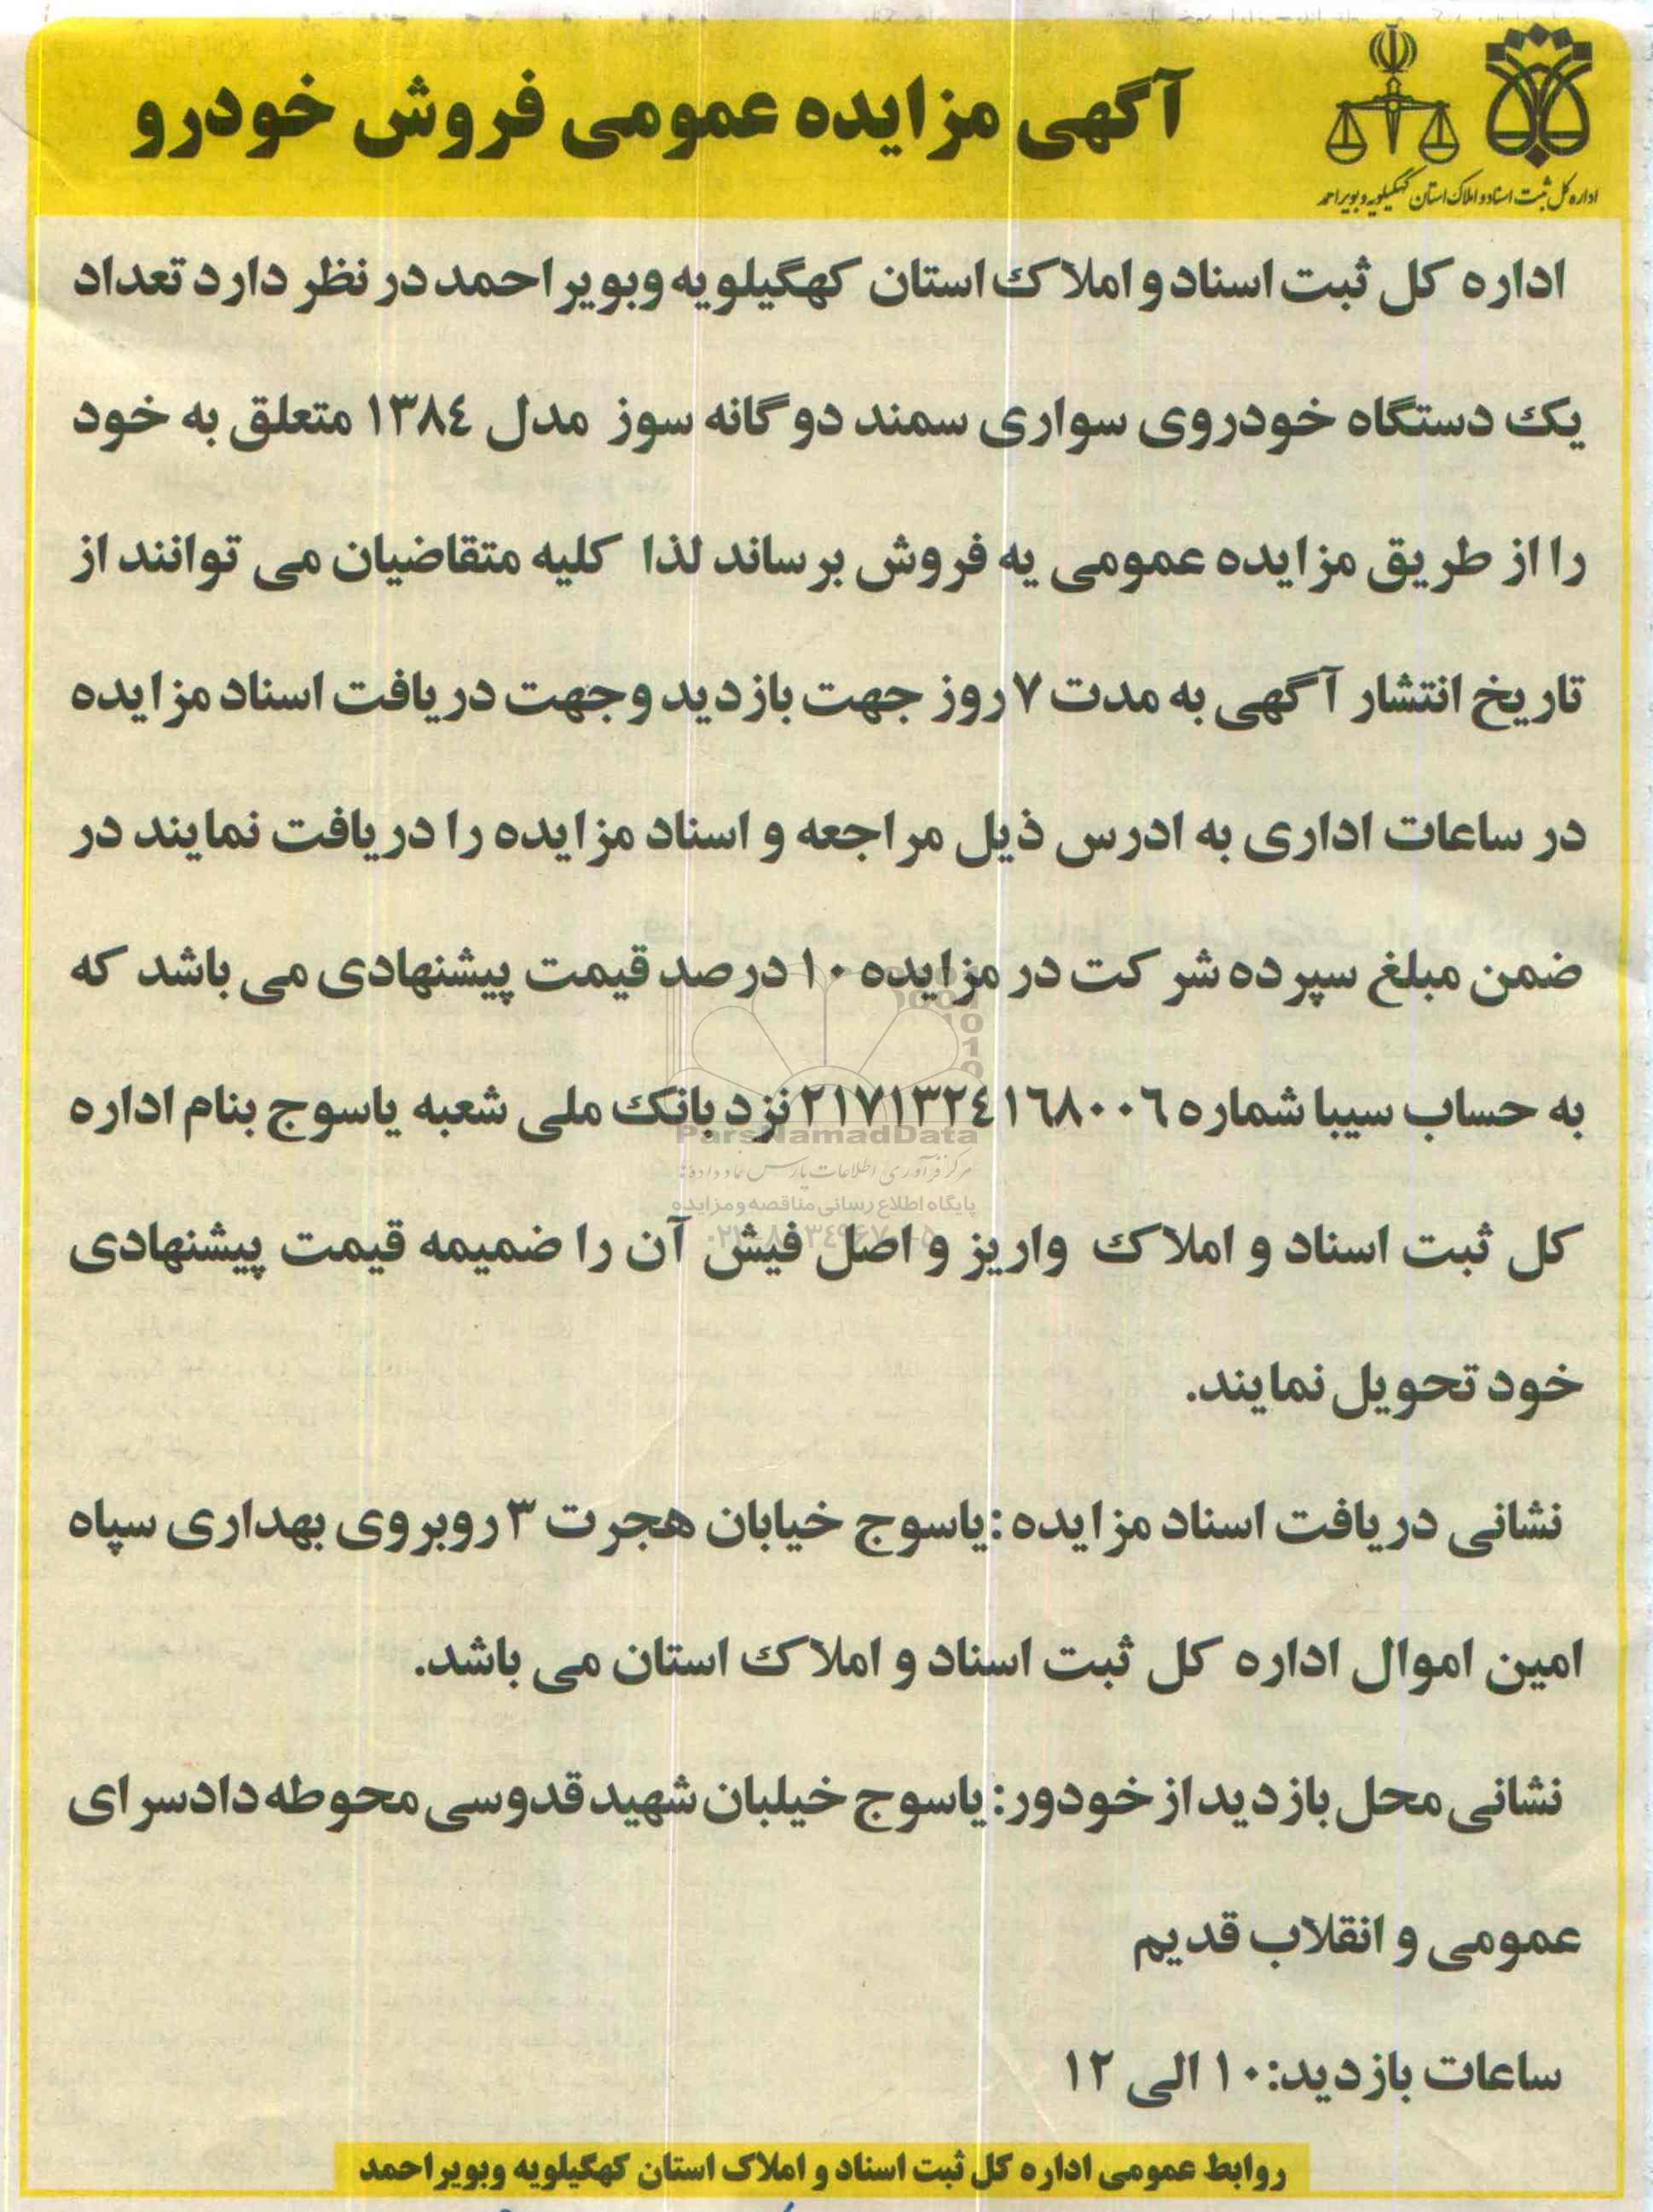 آگهی مزایده عمومی فروش خودرو
اداره کل ثبت اسناد و املاک استان کهگیلویه و بویراحمد
اداره کل ثبت اسناد و املاک استان کهگیلویه وبویر احمد در نظر دارد تعداد
یک دستگاه خودروی سواری سمند دو گانه سوز مدل ۱۳۸٤ متعلق به خود
را از طریق مزایده عمومی یه فروش برساند لذا کلیه متقاضیان می توانند از
تاریخ انتشار آگهی به مدت ۷ روز جهت بازدید وجهت دریافت اسناد مزایده
در ساعات اداری به ادرس ذیل مراجعه و اسناد مزایده را دریافت نمایند در
ضمن مبلغ سپرده شرکت در مزایده ۱۰ درصد قیمت پیشنهادی می باشد که
به حساب سیبا شماره ۲۱۷۱۳۲٤۱٦۸۰۰٦ نزد بانک ملی شعبه یاسوج بنام اداره
ParsNamadData
مرکز فرآوری اطلاعات پارس نماد داده‌ها
پایگاه اطلاع رسانی مناقصه و مزایده
کل ثبت اسناد و املاک واریز و اصل فیش آن را ضمیمه قیمت پیشنهادی
خود تحویل نمایند.
نشانی دریافت اسناد مزایده :یاسوج خیابان هجرت ۳ روبروی بهداری سپاه
امین اموال اداره کل ثبت اسناد و املاک استان می باشد.
نشانی محل بازدید از خودور: یاسوج خیلبان شهید قدوسی محوطه دادسرای
عمومی و انقلاب قدیم
ساعات بازدید: ۱۰ الی ۱۲
روابط عمومی اداره کل ثبت اسناد و املاک استان کهگیلویه وبویر احمد